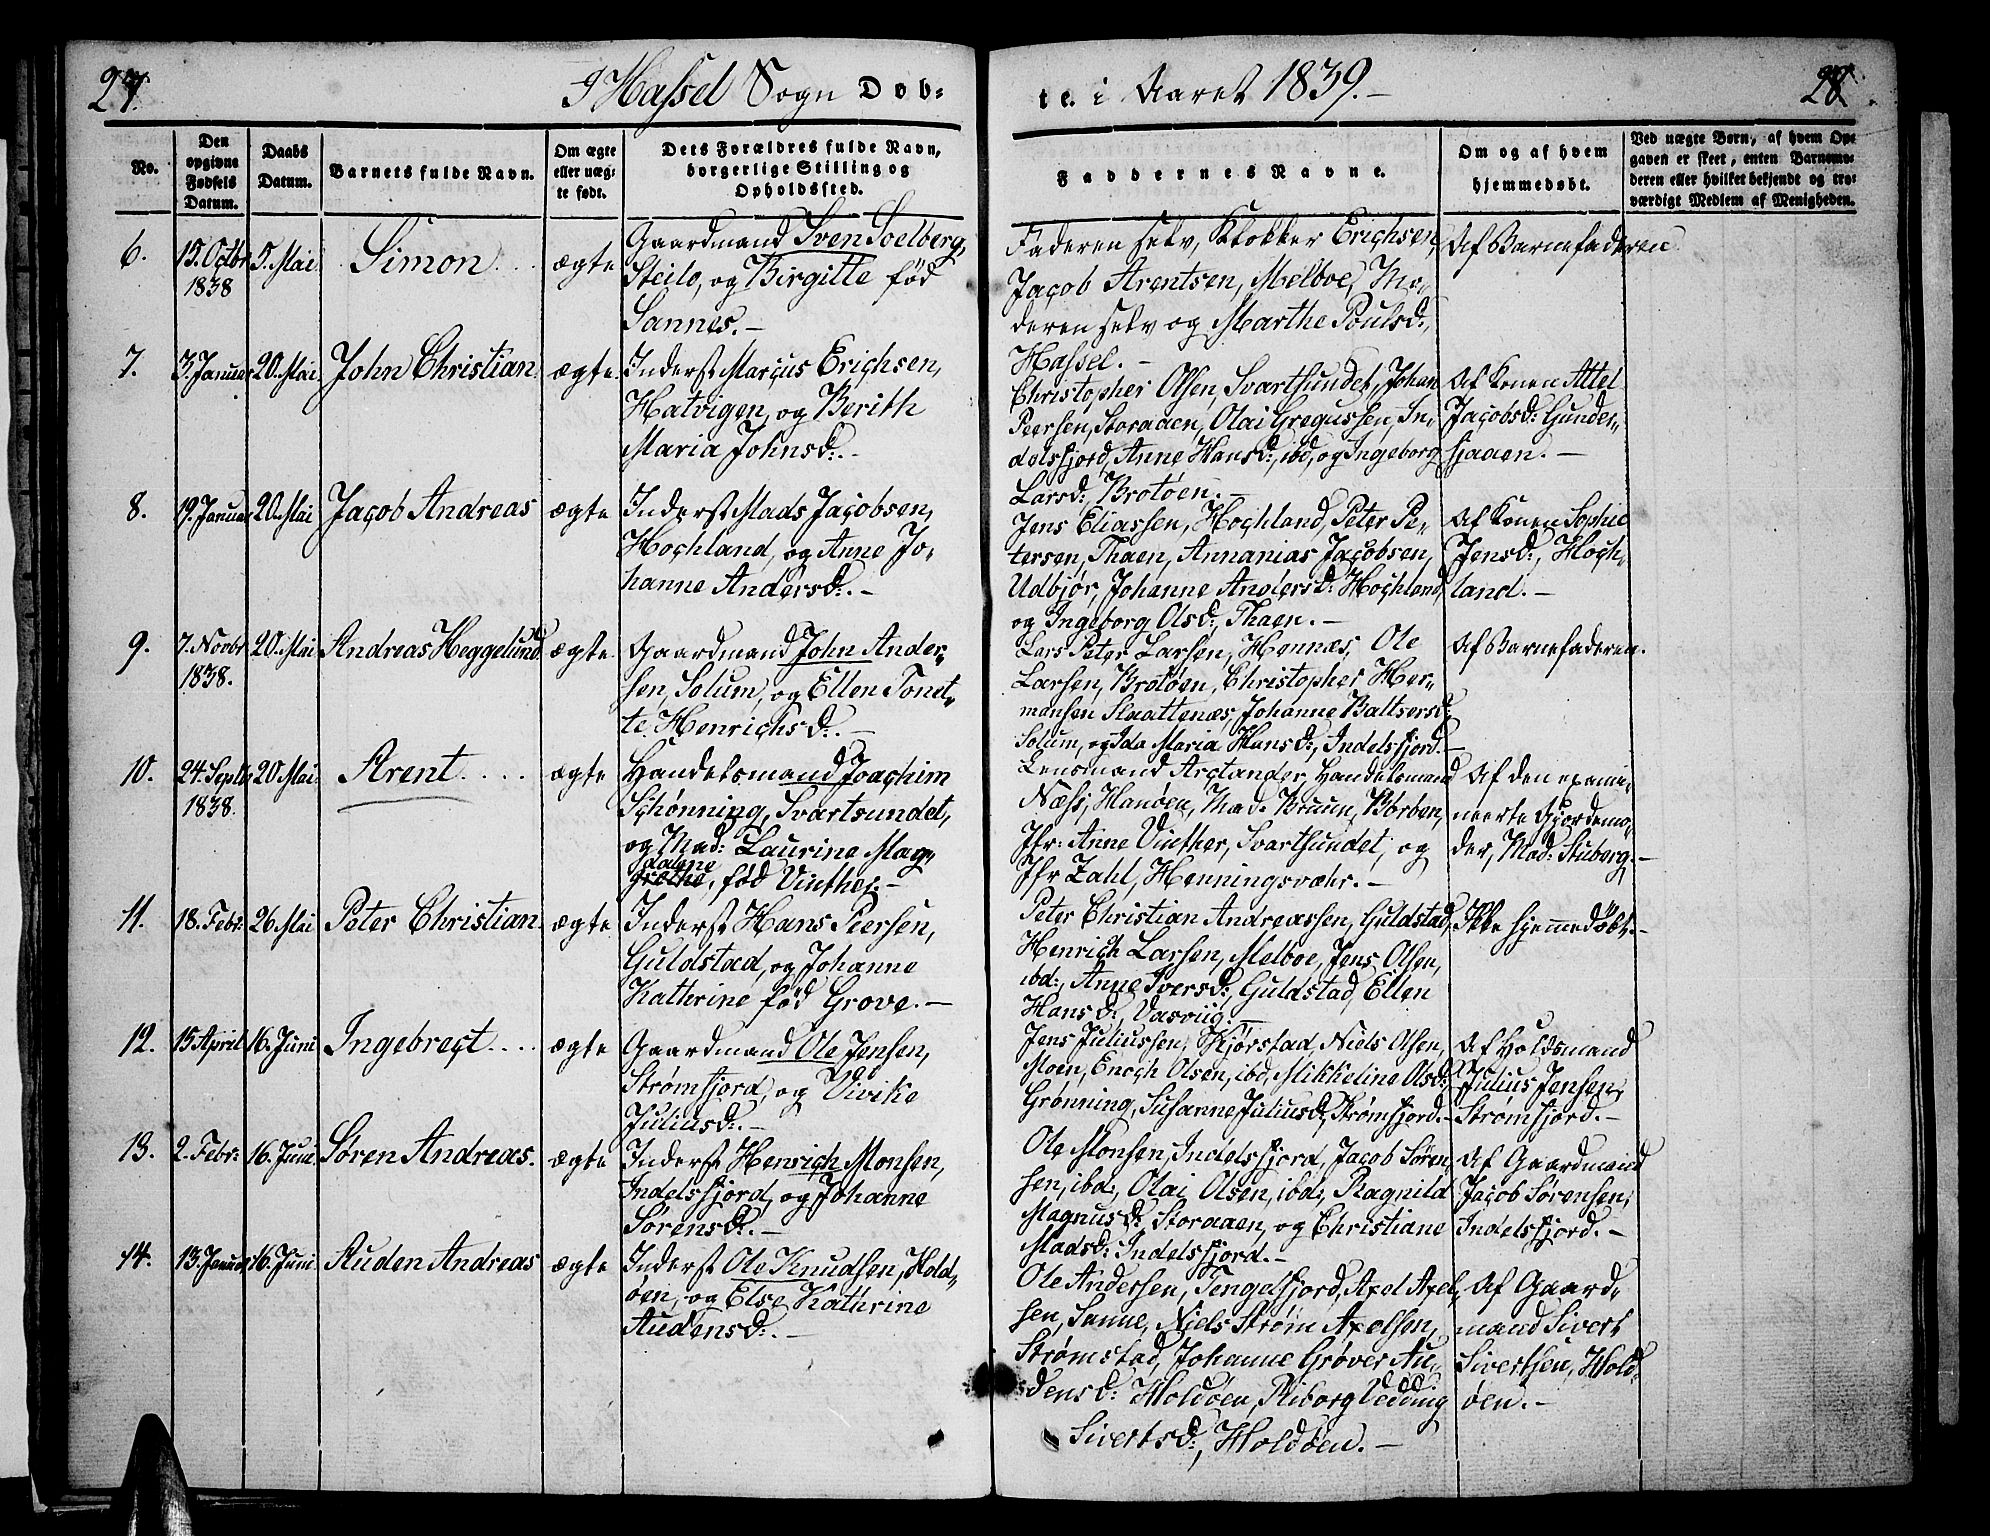 27.
I Hassel Sogn Døb-
te. i Aaret 1839.-
28
No.
Den opgivne Fødsels Datum.
Daabs Datum.
Barnets fulde Navn.
Om ægte eller uægte født.
Dets Forældres fulde Navn, borgerlige Stilling og Opholdssted.
Faddernes Navne.
Om og af hvem hjemmedøbt.
Ved uægte Børn, af hvem Opgaven er skeet, enten Barnemoderen eller hvilket bekjendt og troværdigt Medlem af Menigheden.
6.
15. Octbr
1838
5. Mai
Simon
ægte
Gaardmand Sven Soelberg,
Steilo, og Birgitte fød
Sannes.-
Faderen selv, Klokker Erichsen,
Jacob Arentsen, Melboe, Mo-
deren selv og Marthe Poulsd:,
Hassel.-
Af Barnefaderen
7.
3. Januar
20. Mai
John Christian.
ægte.
Inderst Marcus Erichsen,
Hatvigen, og Berith
Maria Johnsd:.-
Christopher Olsen, Svartsundet, Johan
Peersen, Storaaen, Olai Gregussen, In-
delsfjord, Anne Hansd:, ibd, og Ingeborg
Larsd:, Brotøen.-
Af Konen Attel
Jacobsd: Gunder-
sjaaen.-
8.
19. Januar
20. Mai
Jacob Andreas
ægte
Inderst Mads Jacobsen,
Hochland, og Anne Jo-
hanne Andersd:.-
Jens Eliassen, Hochland, Peter Pe-
tersen, Thaen, Annanias Jacobsen,
Udbjør, Johanne Andersd: Hochland,
og Ingeborg Olsd:, Thaen.-
Af Konen Sophie
Jensd:, Hoch-
land.-
9.
7. Novbr
1838.
20. Mai
Andreas Heggelund
ægte.
Gaardmand John Ander-
sen, Solum, og Ellen Tonet-
te Henrichsd:.-
Lars Peter Larsen, Hennæs, Ole
Larsen, Brotøen, Christopher Her-
mansen Slaattenæs, Johanne Baltsersd:
Solum, og Ida Maria Hansd:, Indelsfjord.-
Af Barnefaderen.
10.
24. Septbr
1838.
20. Mai
Arent
ægte
Handelsmand Joachim
Schønning, Svartsundet,
og Mad: Laurine Mag-
dalene
grethe, fød Vinther.-
Lensmand Arctander, Handelsmand
Næss, Hanøen, Mad: Bruun, Børbøn,
Jfr: Anne Vinther, Svartsundet, og
Jfr Zahl, Henningsvæhr.-
Af den exami-
neerte Gjordemo-
der, Mad: Stuberg.-
11.
18. Febr:
26 Mai
Peter Christian.
ægte.
Inderst Hans Peersen,
Guldstad, og Johanne
Kathrine fød Grove.-
Peter Christian Andreassen, Guldstad,
Henrich Larsen, Melboe, Jens Olsen,
ibd:, Anne Iversd:, Guldstad, Ellen
Hansd:, Vasviig.-
Ikke hjemmedøbt.-
12.
15 April
16. Juni
Ingebregt....
ægte
Gaardmand Ole Jensen,
Strømfjord, og Vivike
Juliusd:.-
Jens Juliussen, Kjørstad, Niels Olsen,
Moen, Enoch Olsen, ibd, Mikkeline Olsd:,
Grønning, Susanne Juliusd:, Strømfjord.-
Af Voldsmand
Julius Jensen,
Strømfjord.-
13.
2. Febr:
16. Juni
Søren Andreas.
ægte
Inderst Henrich Monsen,
Indelsfjord, og Johanne
Sørensd:.-
Ole Monsen, Indelsfjord, Jacob Søren-
sen, ibd:, Olai Olsen, ibd:, Ragnild
Magnusd:, Storaaen, og Christiane
Madsd: Indelsfjord.-
Af Gaardmand
Jacob Sørensen,
Indelsfjord.-
14.
13. Januar
16. Juni
Auden Andreas
ægte
Inderst Ole Knudsen, Hold-
øen, og Else Kathrine
Audensd:.-
Ole Andersen, Tengelfjord, Axel Axel-
sen, Sanne, Niels Strøm Axelsen,
Strømstad, Johanne Grøver Au-
densd: Holdøen, Riborg Vedding
Sivertsd:, Holdøen.-
Af Gaard-
mand Sivert
Sivertsen, Hold-
øen.-